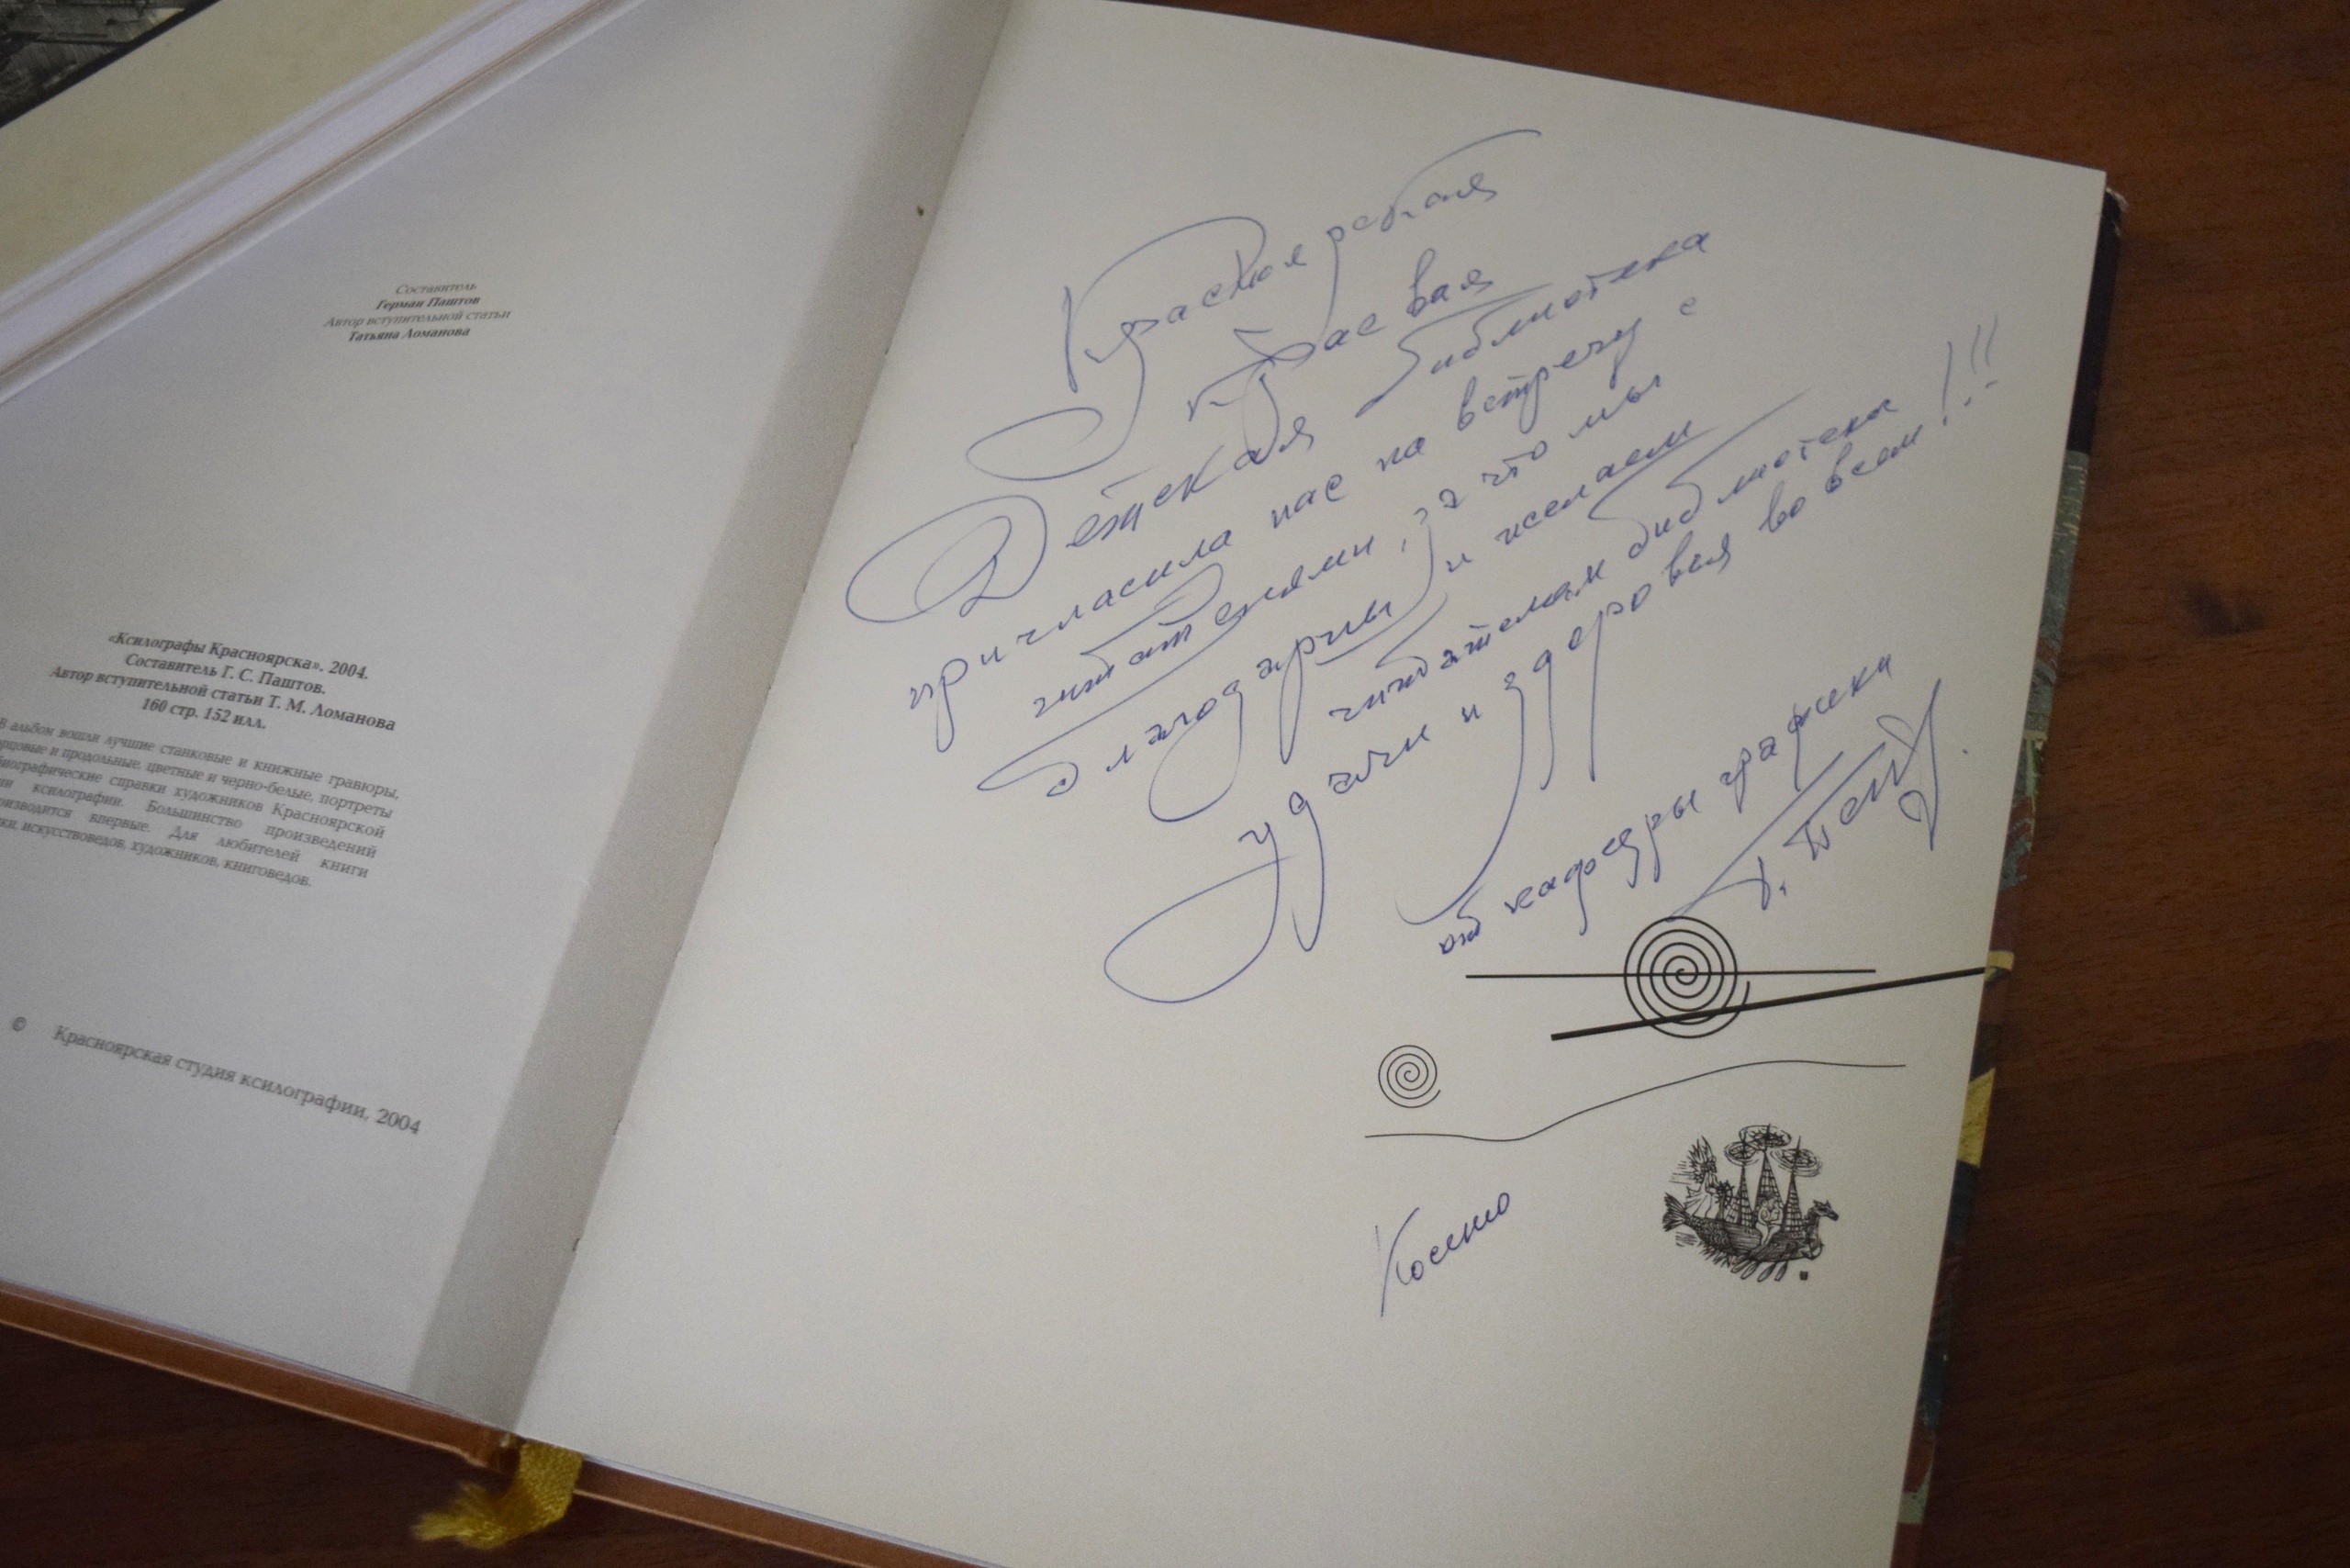 Составитель
Герман Паштов
Автор вступительной статьи
Татьяна Ломанова
«Ксилографы Красноярска». 2004.
Составитель Г. С. Паштов.
Автор вступительной статьи Т. М. Ломанова
160 стр. 152 илл.
В альбом вошли лучшие станковые и книжные гравюры,
и продольные, цветные и черно-белые, портреты
справки художников Красноярской
ксилографии. Большинство произведений
впервые. Для любителей книги
искусствоведов, художников, книговедов.
© Красноярская студия ксилографии, 2004
краевая
Детская библиотека
пригласила нас на встречу с
читателями, за что мы
благодарны и желаем
читателям библиотеки
удачи и здоровья во всем!!!
от кафедры графики